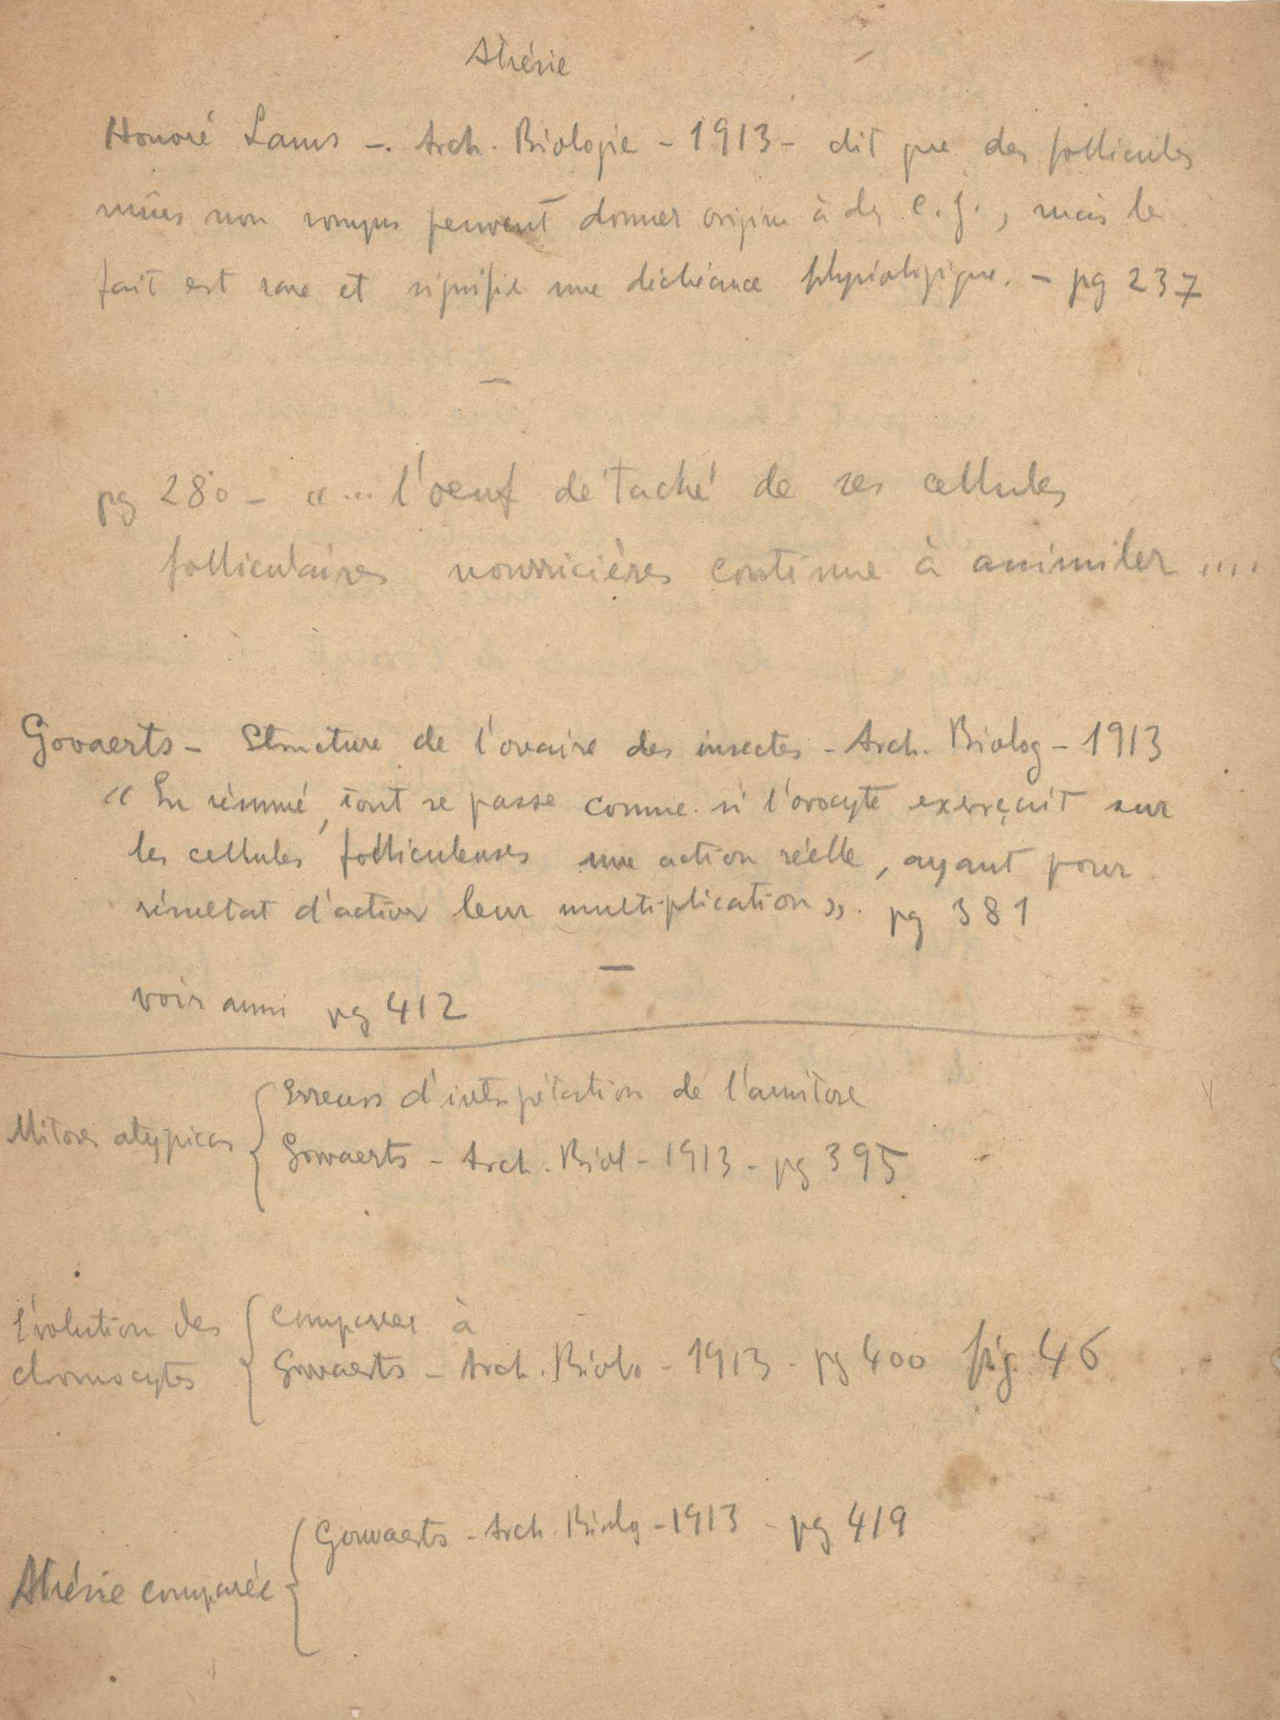 Atrésie
Honoré Lams -. Arch. Biologie - 1913 - dit que des follicules
mûrs non rompus peuvent donner origine à des c. j., mais le
fait est rare et signifie une déchéance physiologique. - pg 237
pg 280 - «... l'oeuf détaché de ses cellules
folliculaires nourricières continue à assimiler ....
Govaerts - Structure de l'ovaire des insectes - Arch. Biolog - 1913
« En résumé, tout se passe comme si l'ovocyte exerçait sur
les cellules folliculeuses une action réelle, ayant pour
résultat d'activer leur multiplication ». pg 381
voir aussi pg 412
Mitoses atypicas
Erreurs d'interpétation de l'amitose
Govaerts - Arch. Biol - 1913 - pg 395
Évolution des
chromocytes
Comparer à
Govaerts - Arch. Biolo - 1913 - pg 400 fig. 46
Atrésie comparée
Gowaerts - Arch. Biolog - 1913 - pg 419